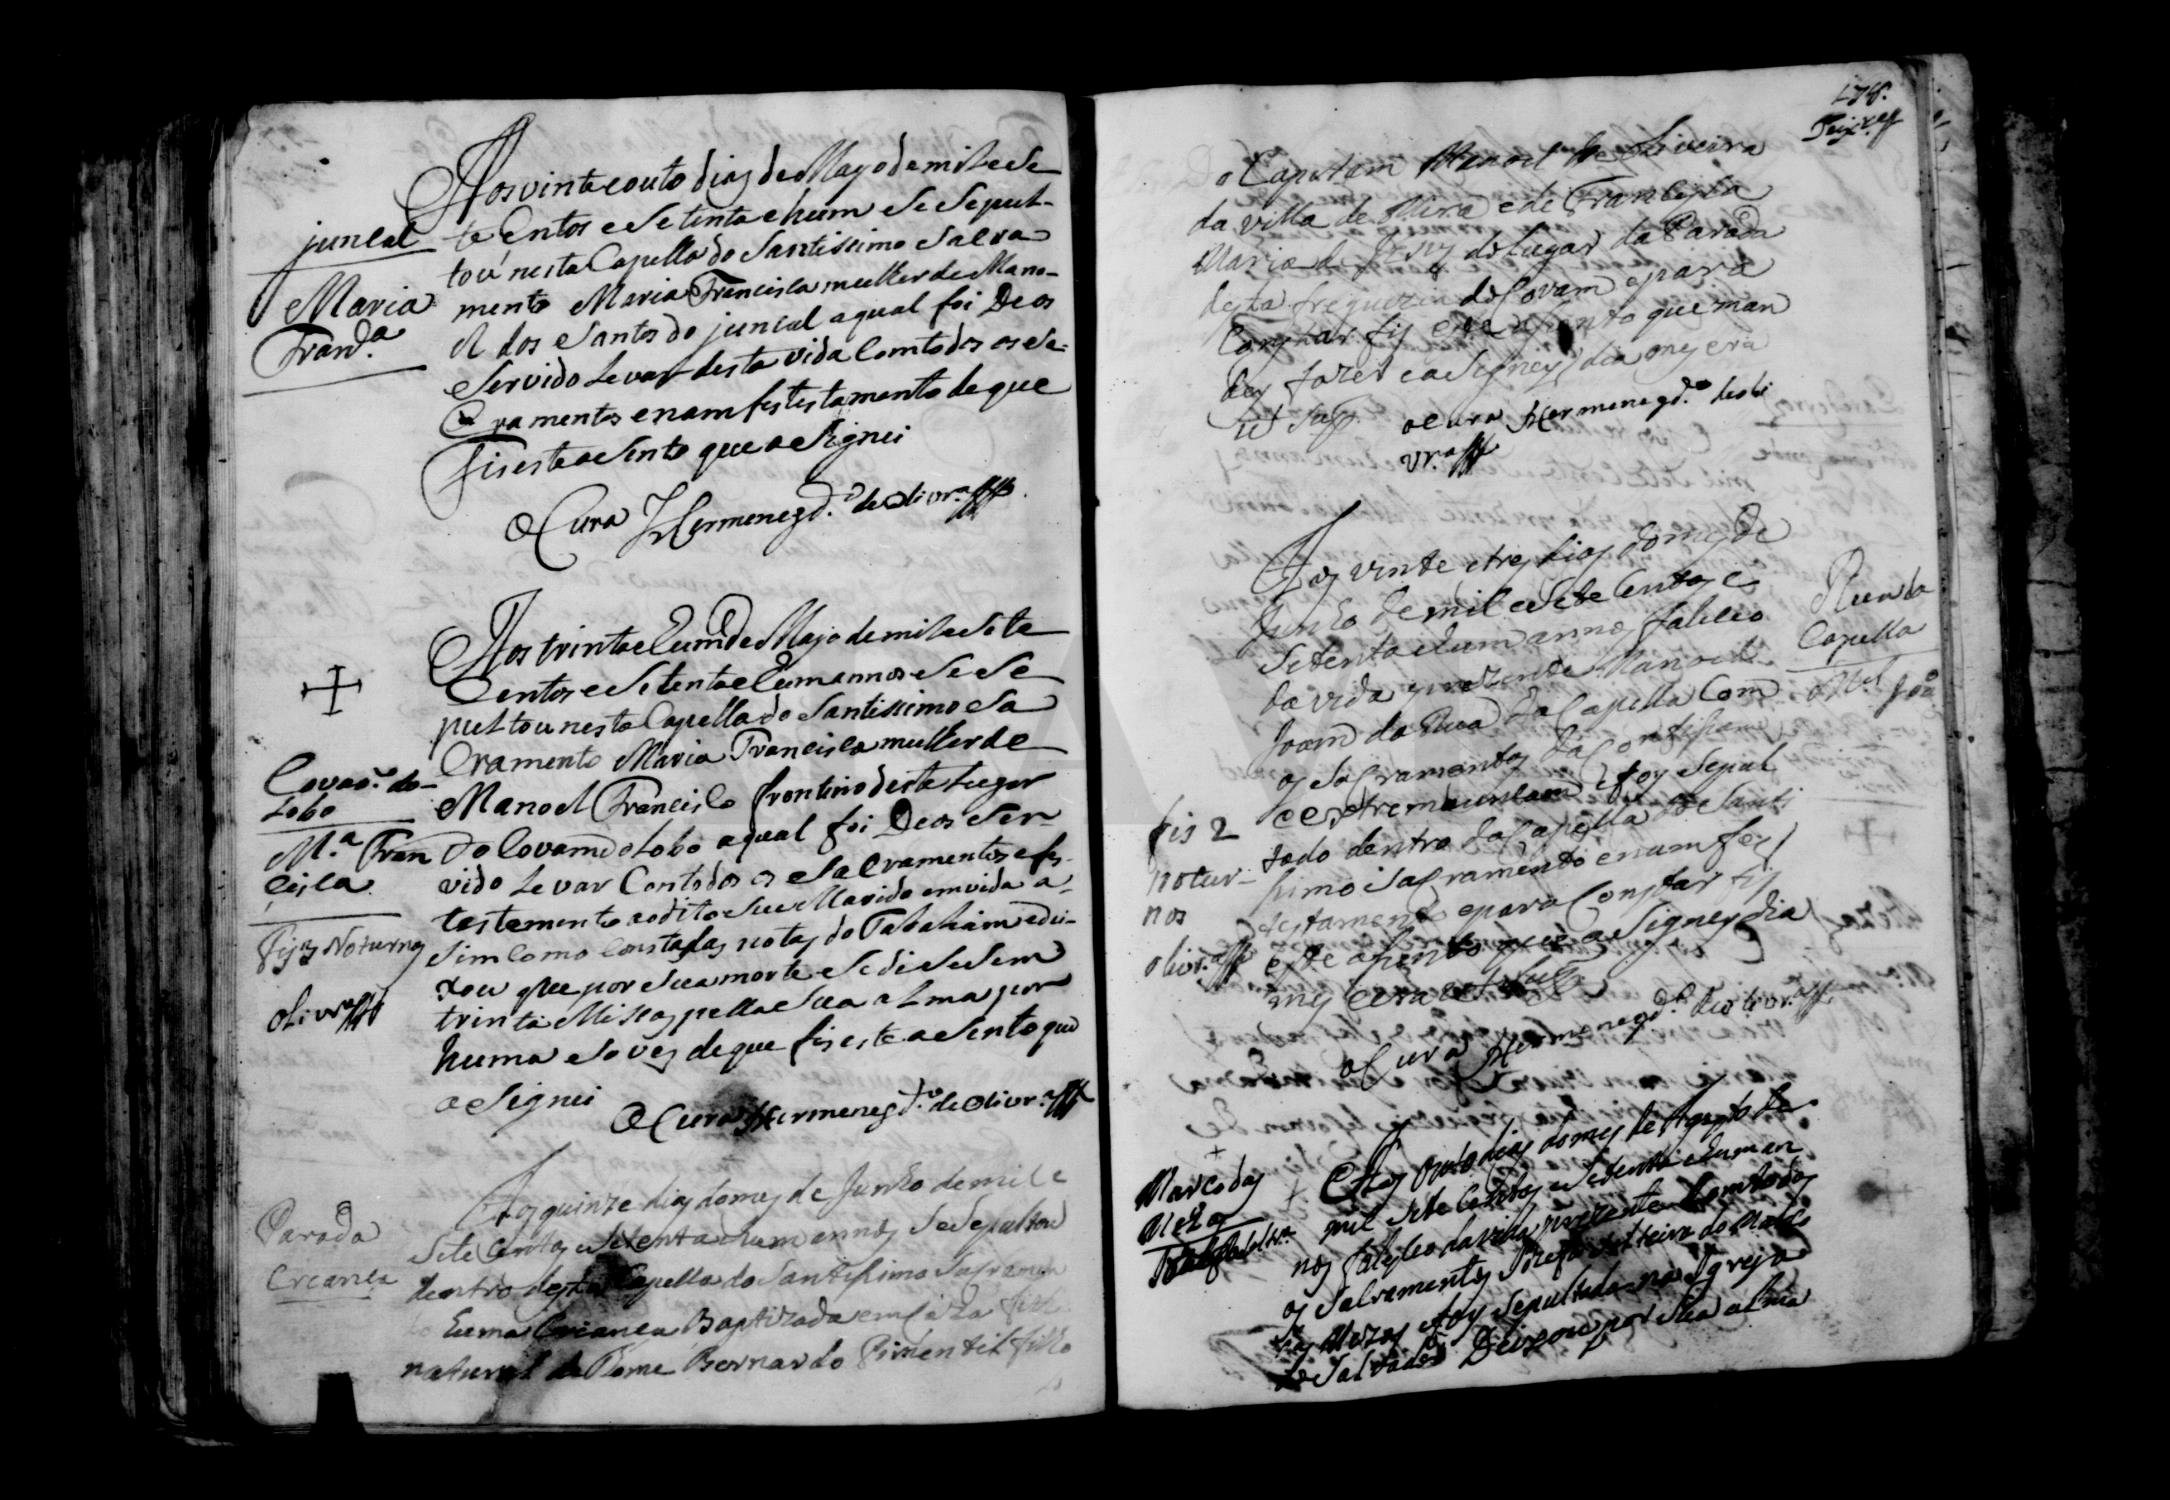 juncal
Maria
Fran.ca
Aos vinte e outo dias de Mayo de mil e se
te Centos e Setenta e hum se sepul-
tou nesta Capella do Santissimo Sacra
mento Maria Francisca mulher de Mano-
el dos Santos do juncal a qual foi Deos
Servido Levar desta vida Com todos os Sa-
Cramentos e nam fes testamento de que
Fis este asento que asignei
O Cura Hermenegd.o de Olivr.a
Covaõ. do
Lobo
M.a Fran
cisca
Fis 2 Noturnos
Olivr.a
Aos trinta e hum de Mayo de mil e Sete
Centos e Setenta e hum annos se Se
pultou nesta Capella do Santissimo Sa
Cramento Maria Francisca mulher de
Manoel Francisco frontino deste Lugar
do Covam do Lobo a qual foi Deos Ser-
vido Levar Com todos os Sacramentos e fes
testamento o dito Seu Marido em vida a-
Sim Como Consta das notas do Tabaliam e dei-
xou que por Sua morte Se disesem
trinta Missas pella Sua alma por
huma So ves de que fis este asento que
asignei
O Cura Hermenegd.o de Olivr.a
Parada
Creanca
Aos quinze dias do mes de Junho de mil e
Sete Centos e Setenta e hum annos se Sepultou
dentro desta Capella do Santissimo Sacramen
to huma Creanca Baptizada em Caza filh
natural de Thome Bernardo Pimentel filho
178.
Teixr.a
do Capitam Manoel de Oliveira
da villa de Mira e de Francisca
Maria de Jesus do Lugar da Parada
desta freguezia do Covam e para
Constar fis este asento que man
dey fazer e asigney dia mes era
ut Supr.
o Cura Hermenegd.o de Oli
vr.a
Rua da
Capella
M.el Joaõ
fis 2
notur-
nos
Olivr.a
Aos vinte e tres dias do mes de
Junho de mil e Sete Centos e
Setenta e hum annos faleceo
da vida prezente Manoel
Joam da Rua da Capella Com
os Sacramentos da Confissam
e Estremaunsam e foy Sepul
tado dentro da Capella do Santi
ssimo Sacramento e nam fes
testamento e para Constar fis
este asento que asigney dia
mes e era ut Supr.
o Cura Hermenegd.o de Olivr.a
Marco das
Mezas
Aos outo dias do mes de Agosto de
mil Sete Centos e Setenta e hum an
nos faleceo da vida prezente Com todos
os Sacramentos Jozefa Solteira do Marco
das Mezas e foy Sepultada na Igreja
de Salvador Deixou por Sua alma